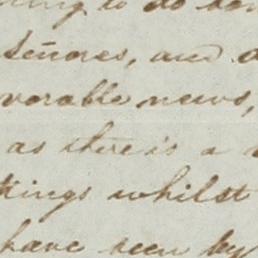 to do
Señores, and
vorable news,
as there is a
kings whilst
have seen by